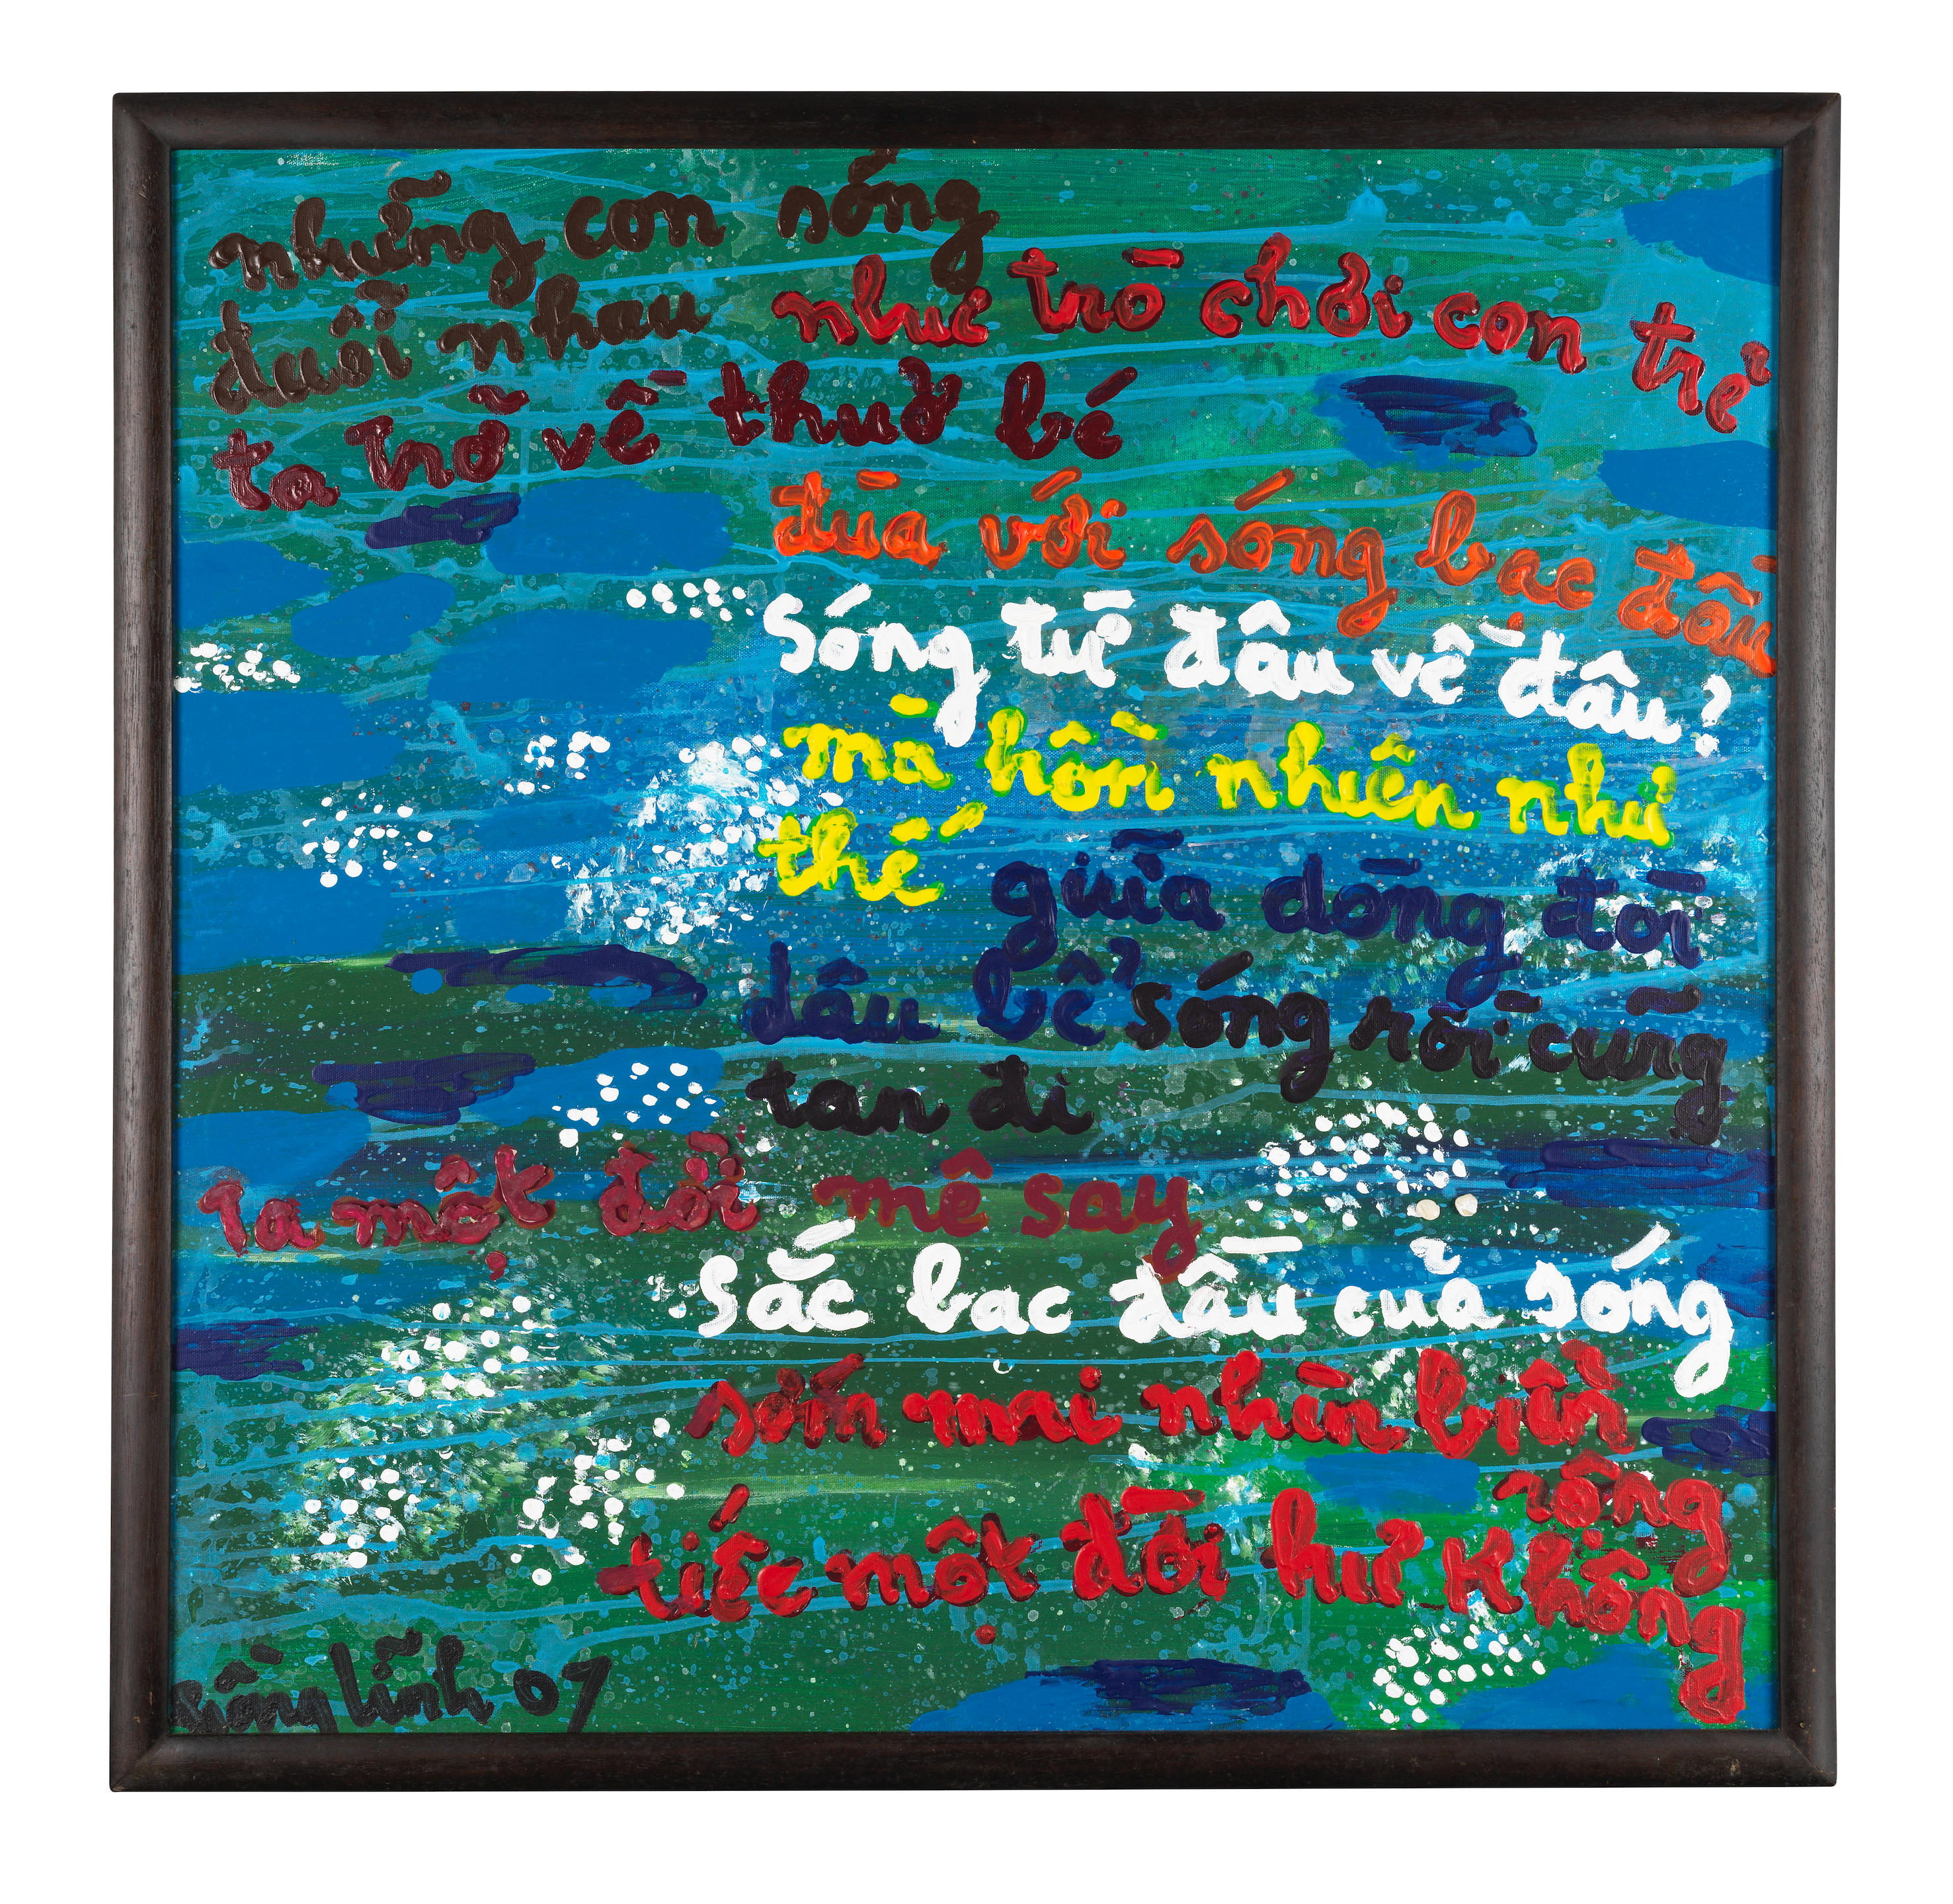 những con sóng
đuổi nhau
như trò chơi con trẻ
ta trở về thuở bé
đùa với sóng bạc đầu
Sóng từ đâu về đâu?
mà hồn nhiên như
thế
giữa dòng đời
dâu bể
sóng rồi cũng
tan đi
Ta một đời mê say
Sắc bạc đầu của sóng
sớm mai nhìn biển
rộng
tiếc một đời hư không
hồng lĩnh 07